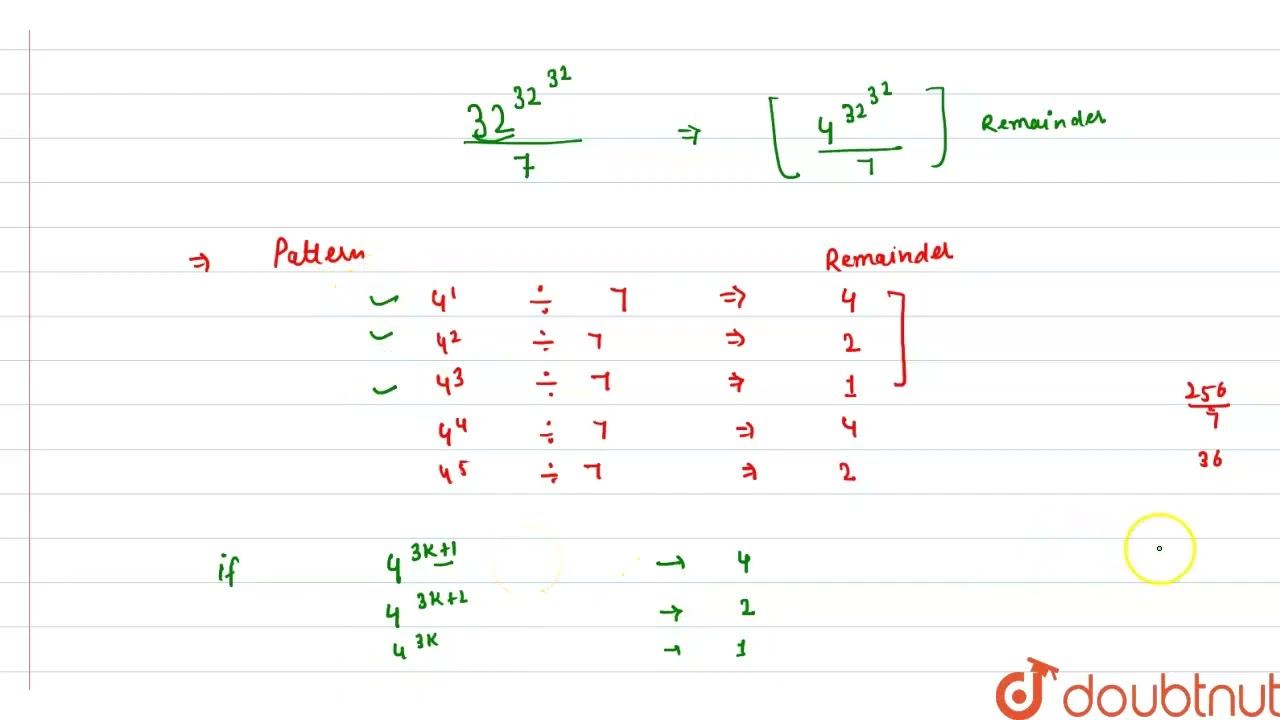 32^32^32 / 7 ⇒ [ 4^32^32 / 7 ] Remainder
⇒ Pattern Remainder
✓ 4^1 ÷ 7 ⇒ 4
✓ 4^2 ÷ 7 ⇒ 2
✓ 4^3 ÷ 7 ⇒ 1
4^4 ÷ 7 ⇒ 4
4^5 ÷ 7 ⇒ 2
256 / 7
36
if 4^3K+1 → 4
4^3K+2 → 2
4^3K → 1
doubtnut